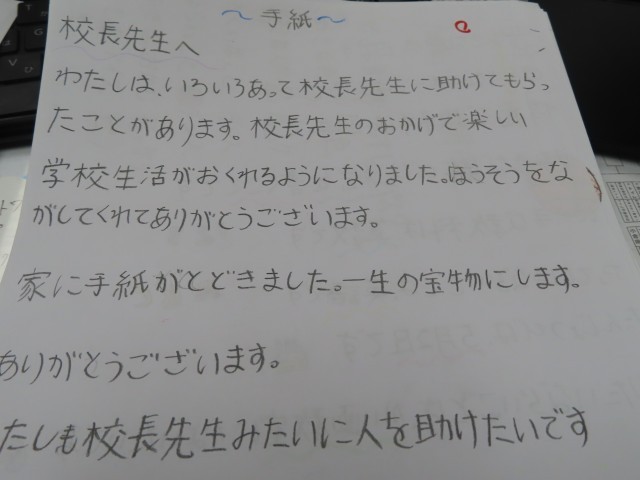 ～手紙～
校長先生へ
わたしは、いろいろあって校長先生に助けてもらっ
たことがあります。校長先生のおかげで楽しい
学校生活がおくれるようになりました。ほうそうをな
がしてくれてありがとうございます。
家に手紙がとどきました。一生の宝物にします。
ありがとうございます。
たしも校長先生みたいに人を助けたいです